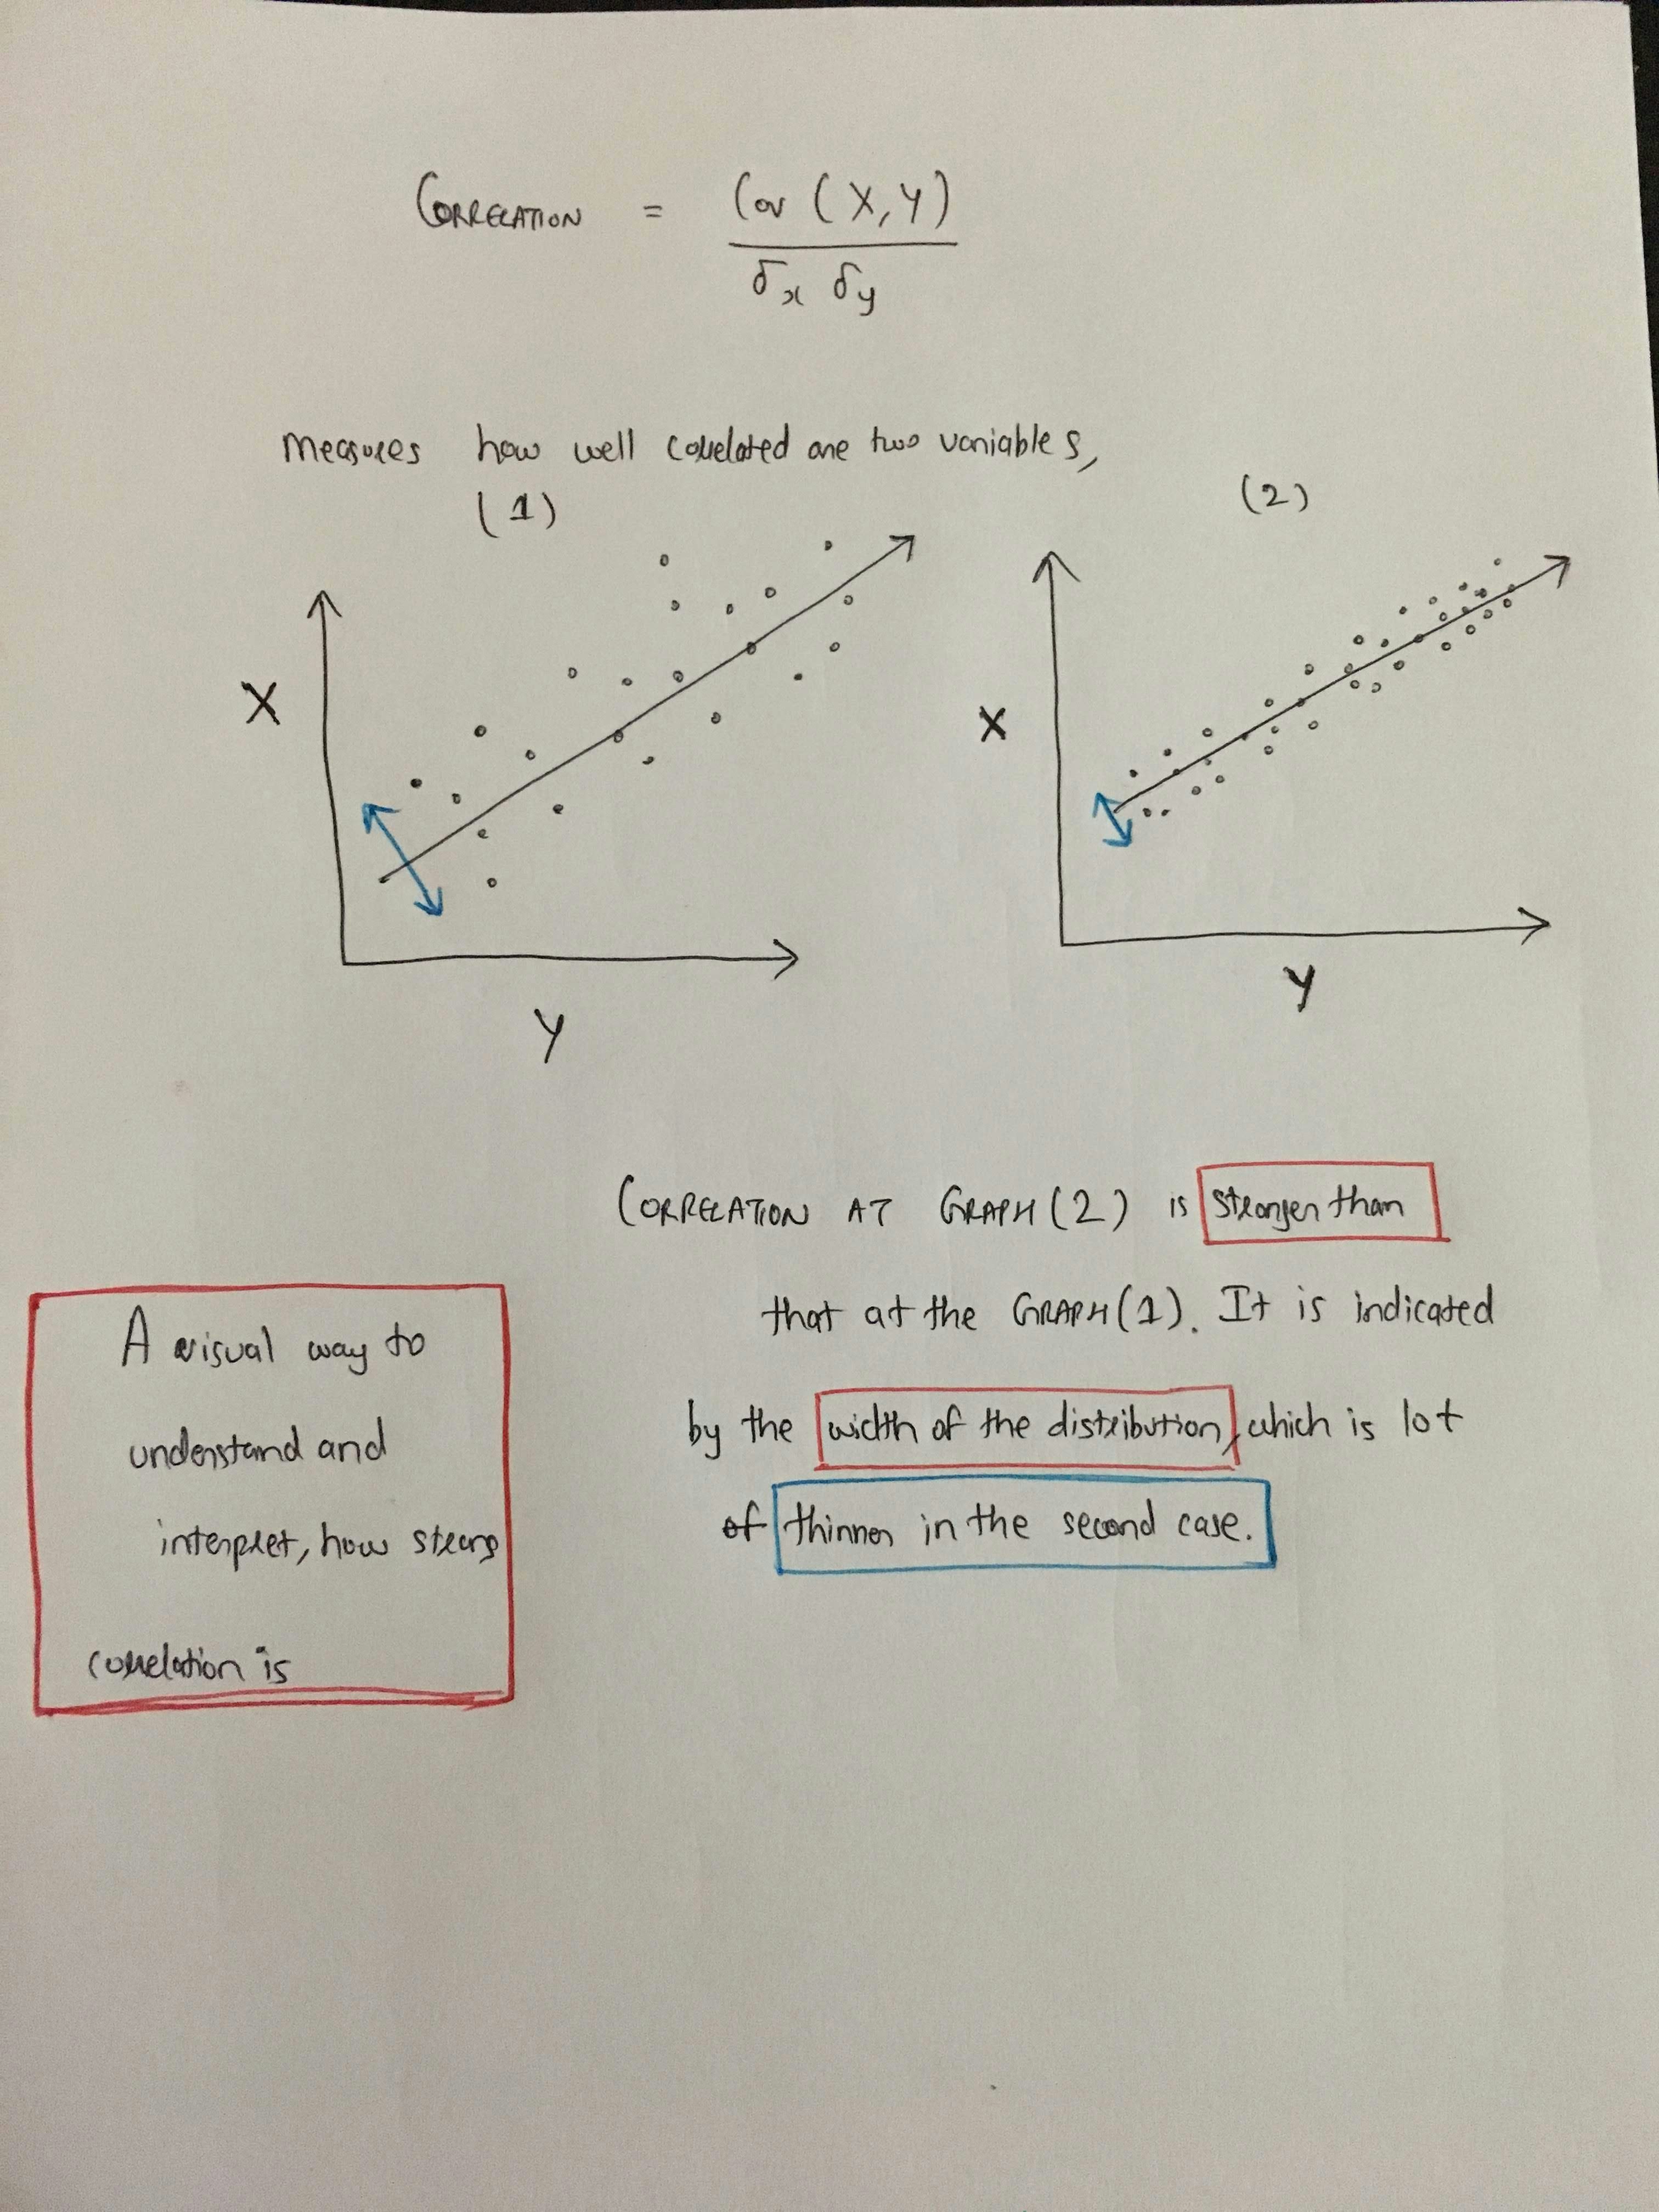 CORRELATION = Cov (X,Y)
δx δy
Measures how well correlated are two variables,
(1)
(2)
X
X
Y
Y
CORRELATION AT GRAPH(2) is stronger than
that at the GRAPH(1). It is indicated
by the width of the distribution, which is lot
of thinner in the second case.
A visual way to
understand and
interpret, how strong
correlation is